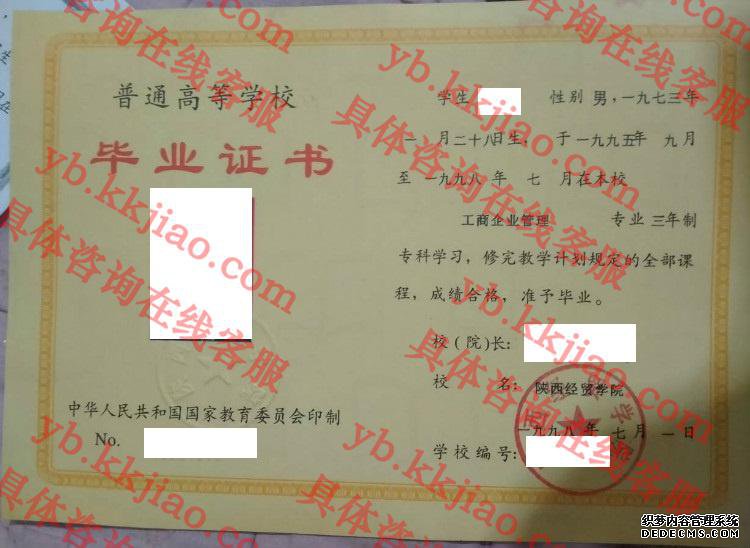 普通高等学校
毕业证书
中华人民共和国国家教育委员会印制
No.
学生 性别 男，一九七三年
一 月二十八日生， 于一九九五年 九月
至 一九九八 年 七 月在本校
工商企业管理 专业 三年制
专科学习，修完教学计划规定的全部课
程，成绩合格，准予毕业。
校（院)长:
校 名: 陕西经贸学院
一九九八 年 七 月 一 日
学校编号:
yb.kkjiao.com
具体咨询在线客服
yb.kkjiao.com
具体咨询在线客服
yb.kkjiao.com
具体咨询在线客服
yb.kkjiao.com
具体咨询在线客服
织梦内容管理系统
DEDECMS.COM